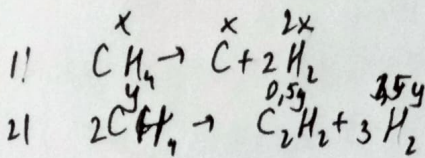 x x 2x
1) CH₄ → C + 2H₂
y 0,5y 1,5y
2) 2CH₄ → C₂H₂ + 3H₂